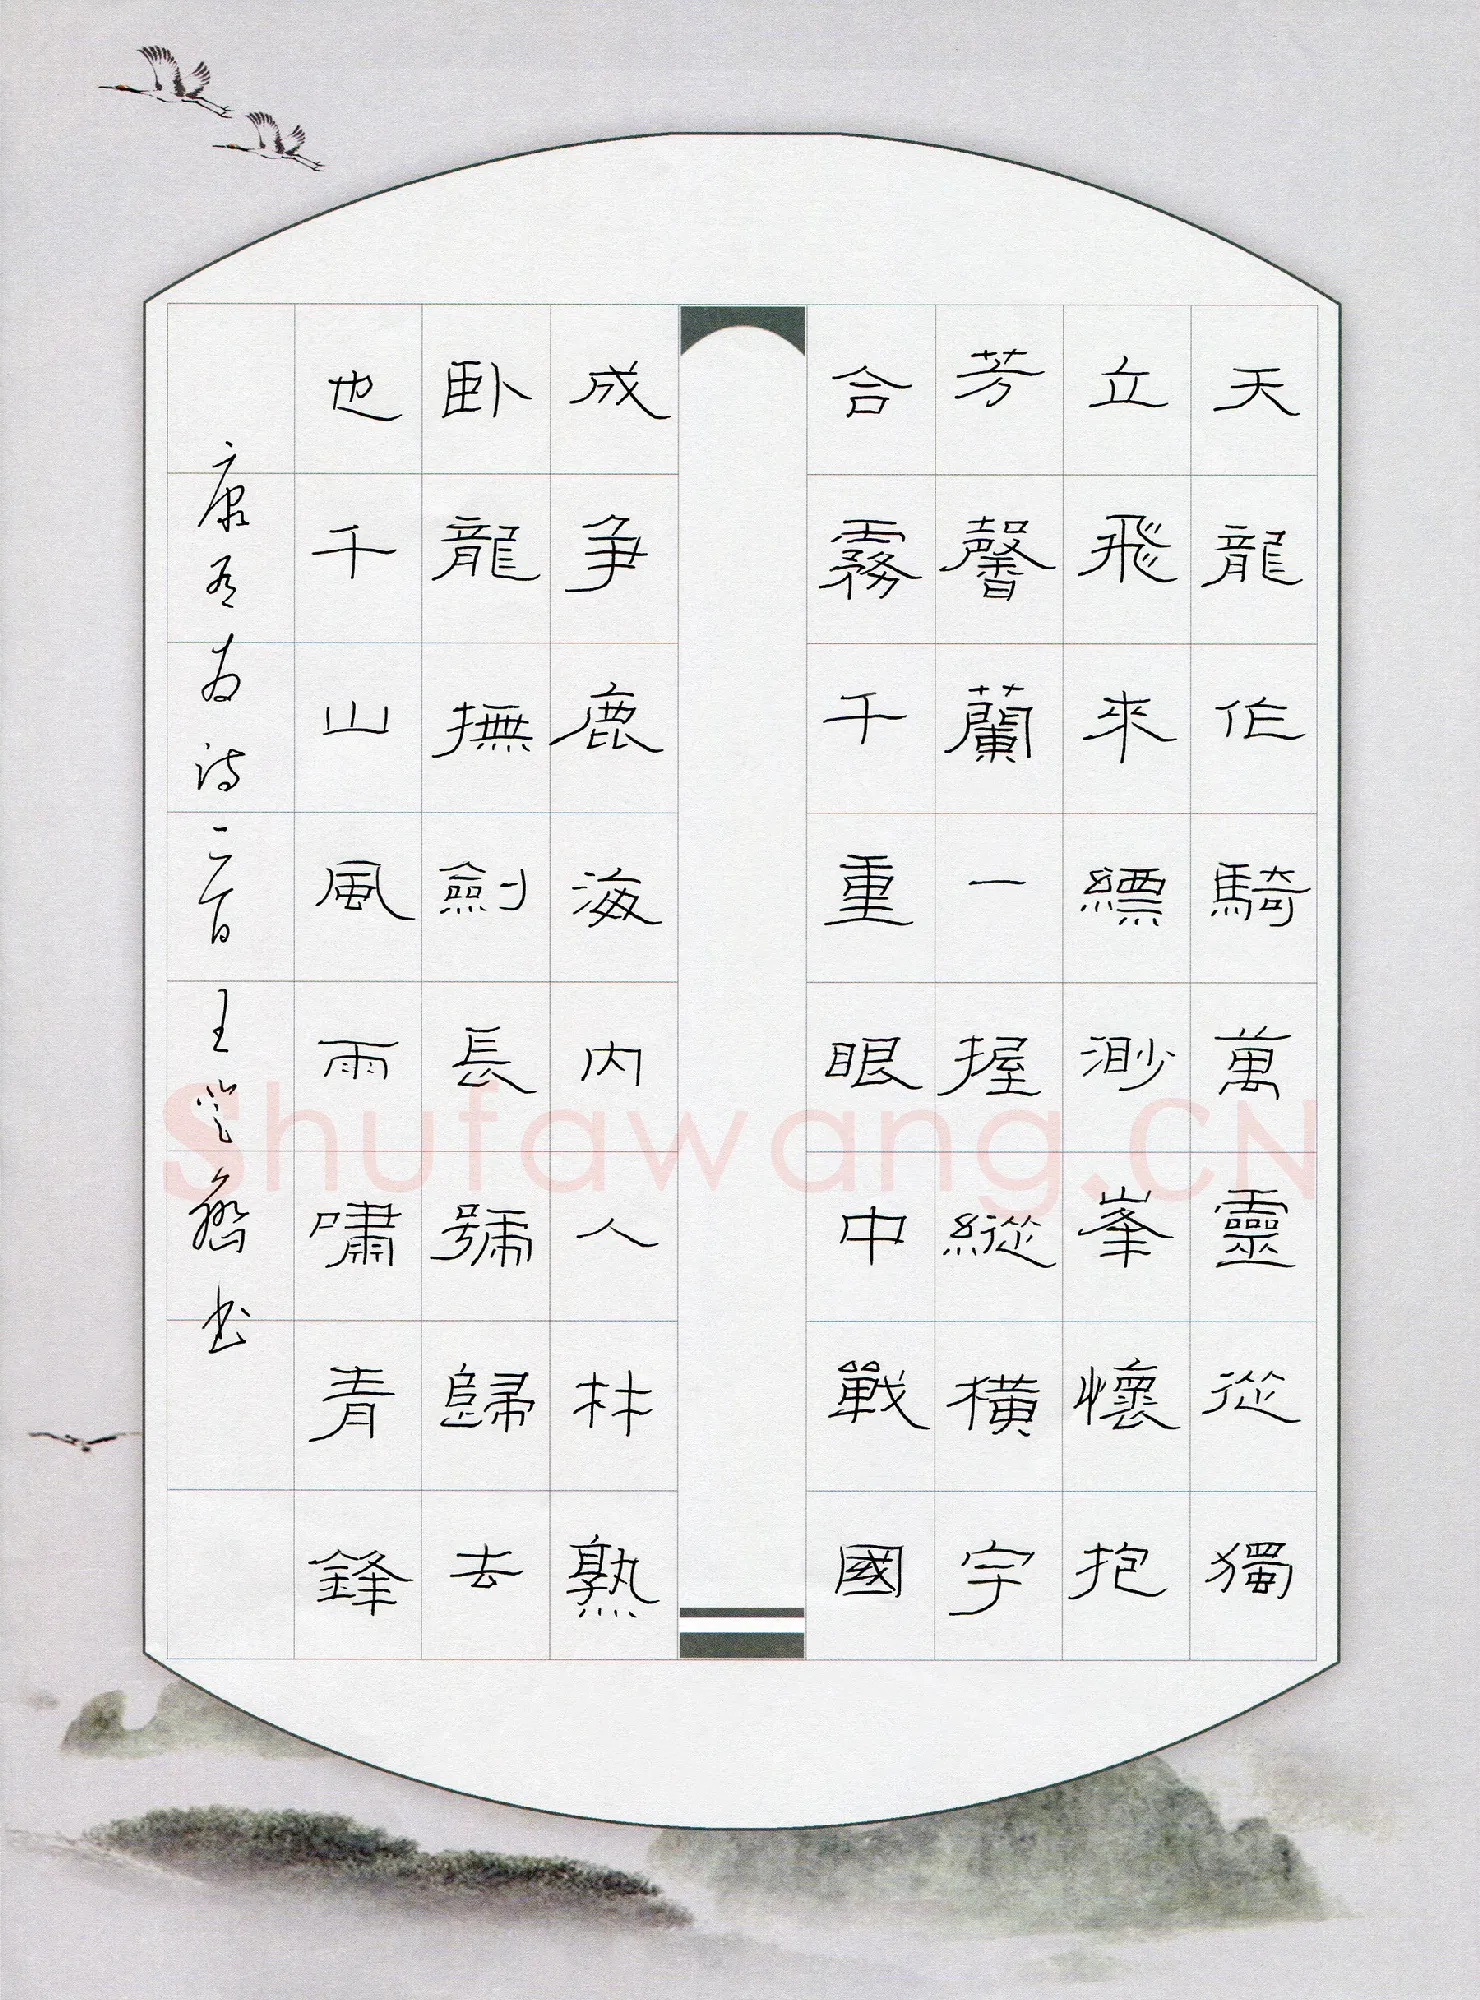 天龍作騎萬靈從獨
立飛來縹渺峯懷抱
芳馨蘭一握縱橫宇
合霧千重眼中戰國
成爭鹿海内人林孰
臥龍撫劍長號歸去
也千山風雨嘯青鋒
康有為詩一首王
書
Shufawang.CN